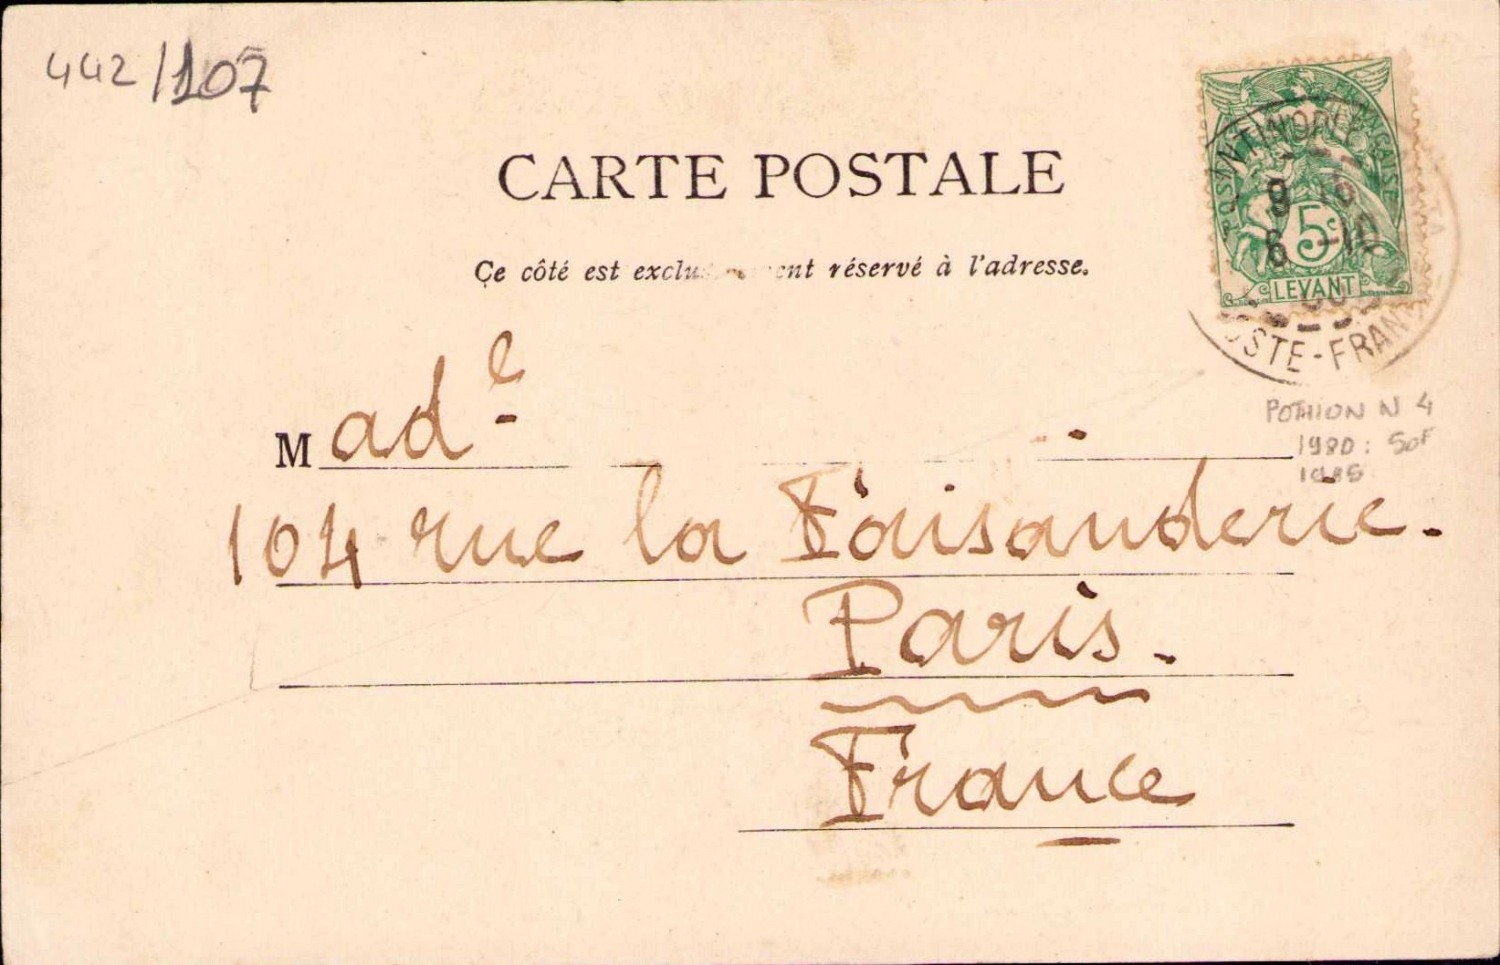 442/107
CARTE POSTALE
Ce côté est réservé à l'adresse.
POSTE FRANÇAISE
5c
LEVANT
NTINOPLE
9
6 -10
OSTE-FRAN
POTHION N 4
1980: 50F
Madle
104 rue la Faisanderie.
Paris.
France